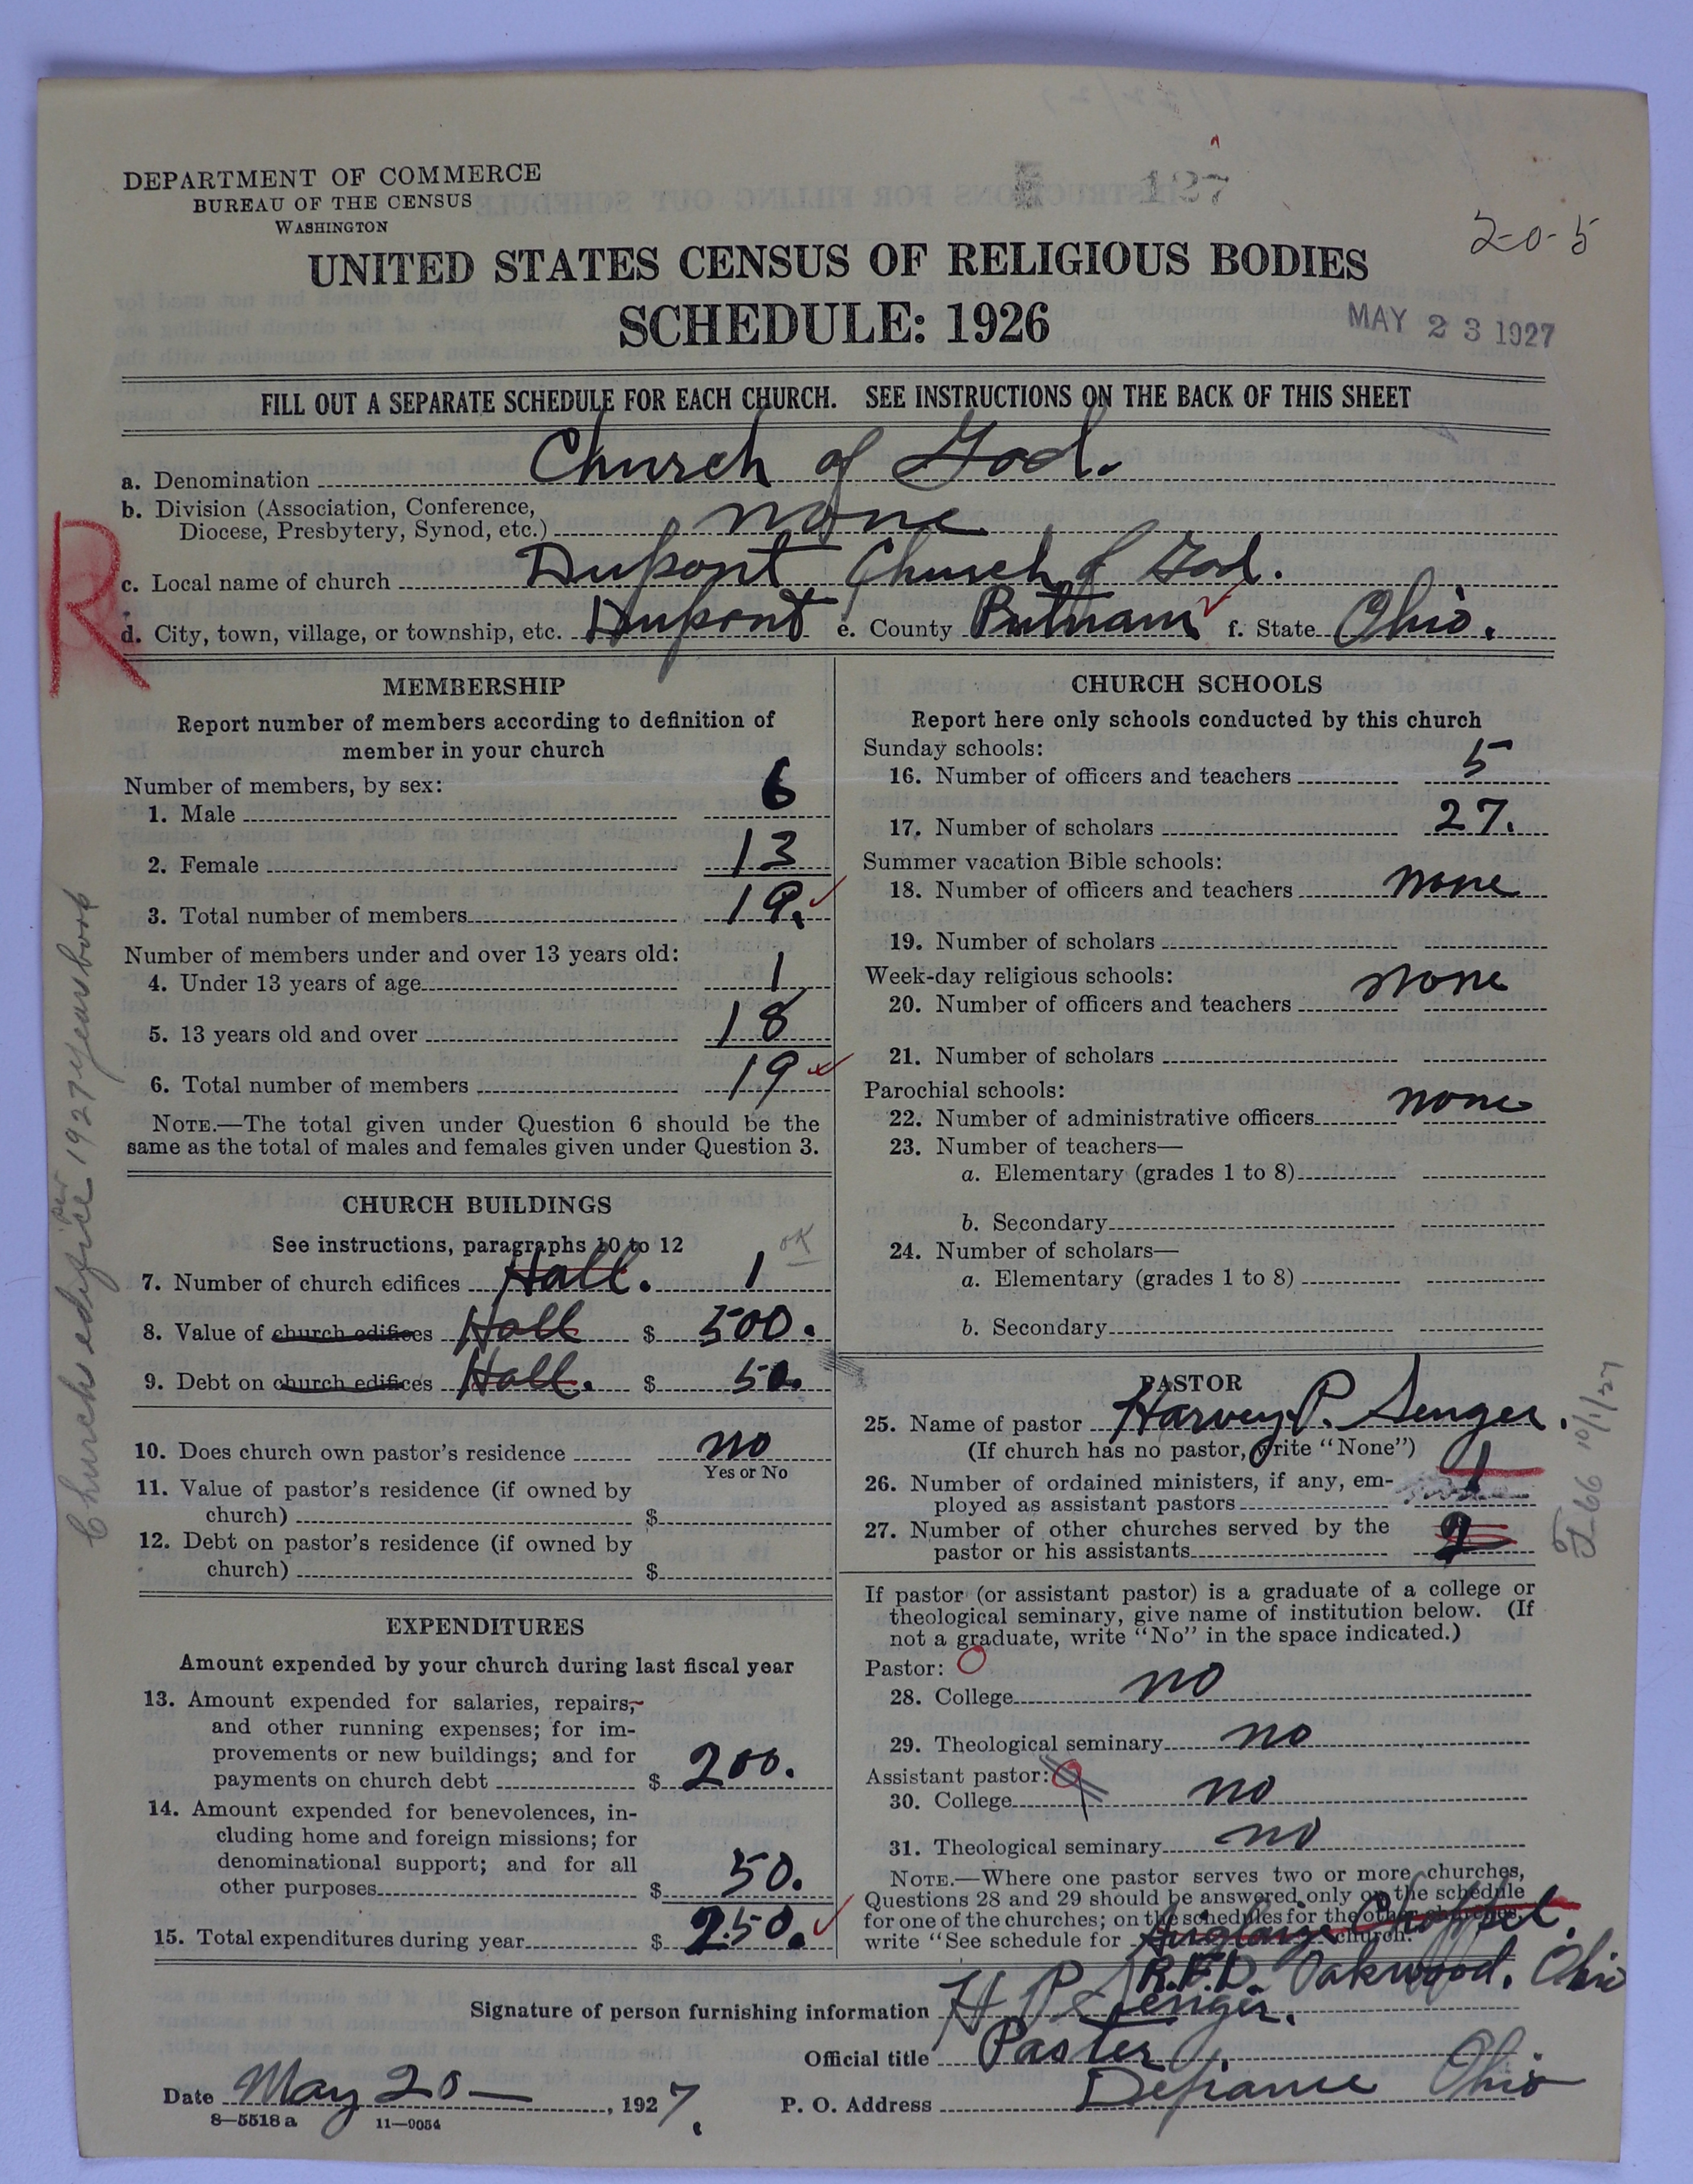 127
DEPARTMENT OF COMMERCE
BUREAU OF THE CENSUS
WASHINGTON
2-0-5
UNITED STATES CENSUS OF RELIGIOUS BODIES
SCHEDULE: 1926
MAY 23 1927
FILL OUT A SEPARATE SCHEDULE FOR EACH CHURCH. SEE INSTRUCTIONS ON THE BACK OF THIS SHEET
a. Denomination Church of God.
b. Division (Association, Conference,
Diocese, Presbytery, Synod, etc.) none
R
c. Local name of church Dupont Church of God.
d. City, town, village, or township, etc. Dupont e. County Putnam f. State Ohio.
MEMBERSHIP
Report number of members according to definition of
member in your church
Number of members, by sex:
1. Male 6
2. Female 13
3. Total number of members 19.
Number of members under and over 13 years old:
4. Under 13 years of age 1
5. 13 years old and over 18
6. Total number of members 19
NOTE.—The total given under Question 6 should be the
same as the total of males and females given under Question 3.
CHURCH BUILDINGS
See instructions, paragraphs 10 to 12
OK
7. Number of church edifices Hall. 1
8. Value of church edifices Hall $ 500.
9. Debt on church edifices Hall. $ 50.
10. Does church own pastor's residence no
Yes or No
11. Value of pastor's residence (if owned by
church) $
12. Debt on pastor's residence (if owned by
church) $
EXPENDITURES
Amount expended by your church during last fiscal year
13. Amount expended for salaries, repairs,
and other running expenses; for im-
provements or new buildings; and for
payments on church debt $ 200.
14. Amount expended for benevolences, in-
cluding home and foreign missions; for
denominational support; and for all
other purposes $ 50.
15. Total expenditures during year $ 250.
Church edifice per 1927 yearbook
CHURCH SCHOOLS
Report here only schools conducted by this church
Sunday schools:
16. Number of officers and teachers 5
17. Number of scholars 27.
Summer vacation Bible schools:
18. Number of officers and teachers none
19. Number of scholars
Week-day religious schools:
20. Number of officers and teachers none
21. Number of scholars
Parochial schools:
22. Number of administrative officers none
23. Number of teachers—
a. Elementary (grades 1 to 8)
b. Secondary
24. Number of scholars—
a. Elementary (grades 1 to 8)
b. Secondary
PASTOR
25. Name of pastor Harvey P. Senger.
(If church has no pastor, write "None")
26. Number of ordained ministers, if any, em-
ployed as assistant pastors 1
27. Number of other churches served by the
pastor or his assistants 2
10/1/27
If pastor (or assistant pastor) is a graduate of a college or
theological seminary, give name of institution below. (If
not a graduate, write "No" in the space indicated.)
Pastor:
28. College no
29. Theological seminary no
Assistant pastor:
30. College no
31. Theological seminary no
NOTE.—Where one pastor serves two or more churches,
Questions 28 and 29 should be answered only on the schedule
for one of the churches; on the schedules for the other churches,
write "See schedule for Auglaize Chappel. church."
R.F.D. Oakwood. Ohio
Signature of person furnishing information H P Senger.
Official title Paster.
Date May 20 —, 1927. P. O. Address Defiance Ohio
8—5518 a 11—9054